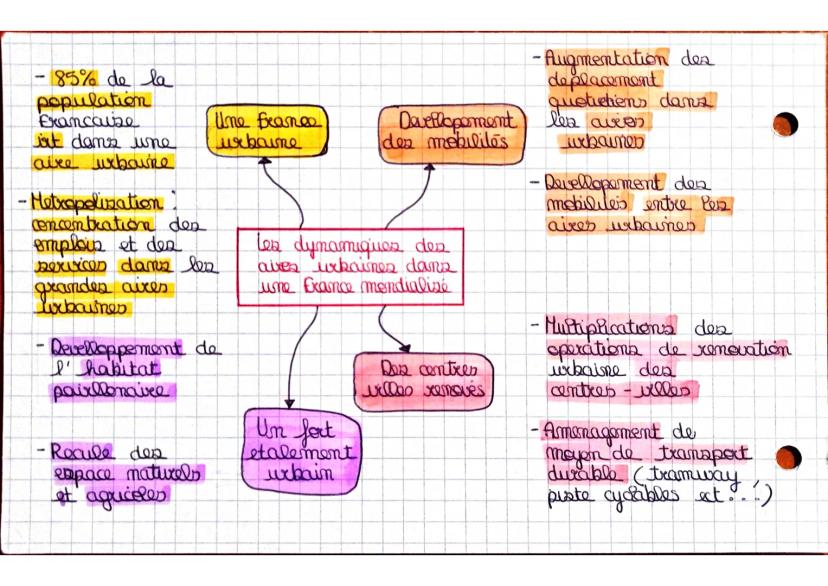 - 85% de la
population
francaise
vit dans une
aire urbaine
- Metropolization :
concentration des
emplois et des
services dans les
grandes aires
urbaines
Une france
urbaine
Devellopement
des mobilités
- Augmentation des
déplacement
quotidiens dans
les aires
urbaines
- Devellopement des
mobilités entre les
aires urbaines
les dynamiques des
aires urbaines dans
une france mondialisé
- Develloppement de
l'habitat
pavillonaire
- Recule des
espace naturels
et agricoles
Un fort
etalement
urbain
Des centres
villes renovés
- Multiplications des
operations de renovation
urbaine des
centres-villes
- Amenagement de
moyen de transport
durable (tramway
piste cyclables ect...)